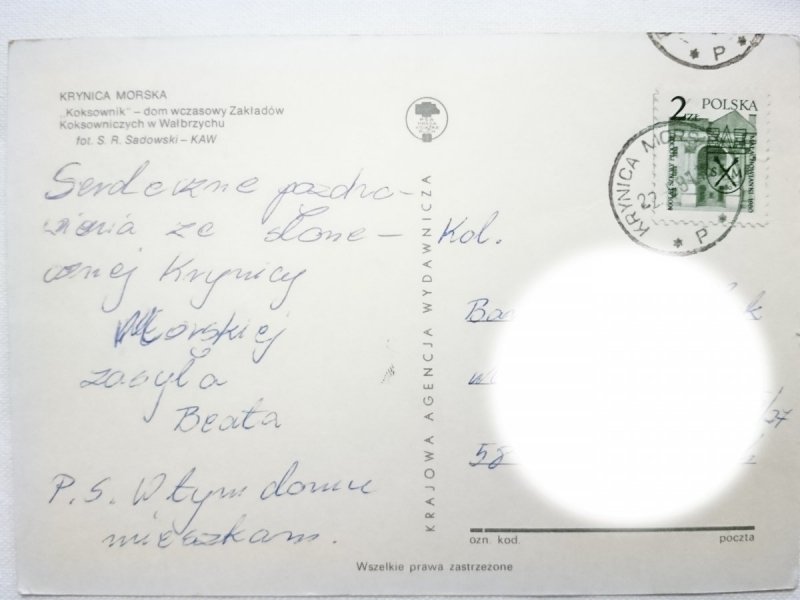 KRYNICA MORSKA
„Koksownik” – dom wczasowy Zakładów
Koksowniczych w Wałbrzychu
fot. S. R. Sadowski – KAW
Serdeczne pozdro-
wienia ze słone-
cznej Krynicy
Morskiej
zasyła
Beata
P.S. W tym domu
mieszkam.
KRAJOWA AGENCJA WYDAWNICZA
P
2 ZŁ POLSKA
KRYNICA MORSKA
P
Kol.
58
ozn. kod. poczta
Wszelkie prawa zastrzeżone